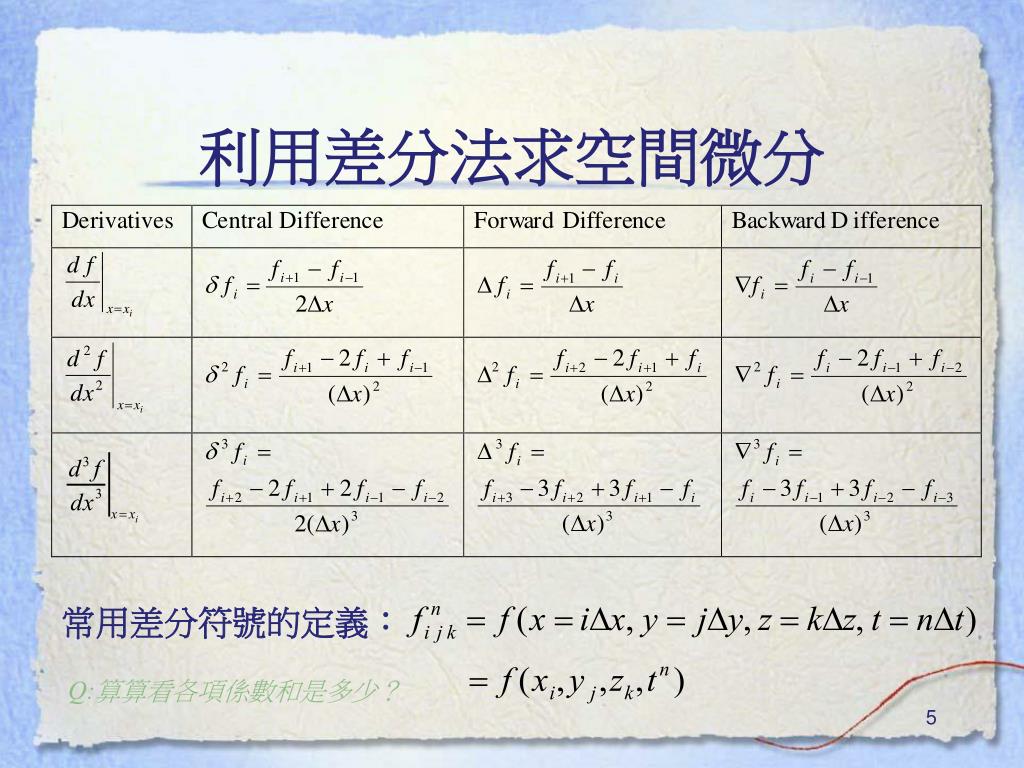 利用差分法求空間微分
Derivatives | Central Difference | Forward Difference | Backward D ifference
$\left.\frac{df}{dx}\right|_{x=x_i}$ | $\delta f_i = \frac{f_{i+1} - f_{i-1}}{2\Delta x}$ | $\Delta f_i = \frac{f_{i+1} - f_i}{\Delta x}$ | $\nabla f_i = \frac{f_i - f_{i-1}}{\Delta x}$
$\left.\frac{d^2 f}{dx^2}\right|_{x=x_i}$ | $\delta^2 f_i = \frac{f_{i+1} - 2f_i + f_{i-1}}{(\Delta x)^2}$ | $\Delta^2 f_i = \frac{f_{i+2} - 2f_{i+1} + f_i}{(\Delta x)^2}$ | $\nabla^2 f_i = \frac{f_i - 2f_{i-1} + f_{i-2}}{(\Delta x)^2}$
$\left.\frac{d^3 f}{dx^3}\right|_{x=x_i}$ | $\delta^3 f_i = \frac{f_{i+2} - 2f_{i+1} + 2f_{i-1} - f_{i-2}}{2(\Delta x)^3}$ | $\Delta^3 f_i = \frac{f_{i+3} - 3f_{i+2} + 3f_{i+1} - f_i}{(\Delta x)^3}$ | $\nabla^3 f_i = \frac{f_i - 3f_{i-1} + 3f_{i-2} - f_{i-3}}{(\Delta x)^3}$
常用差分符號的定義：$f_{i\,j\,k}^{n} = f(x = i\Delta x, y = j\Delta y, z = k\Delta z, t = n\Delta t)$
$= f(x_i, y_j, z_k, t^n)$
Q:算算看各項係數和是多少？
5